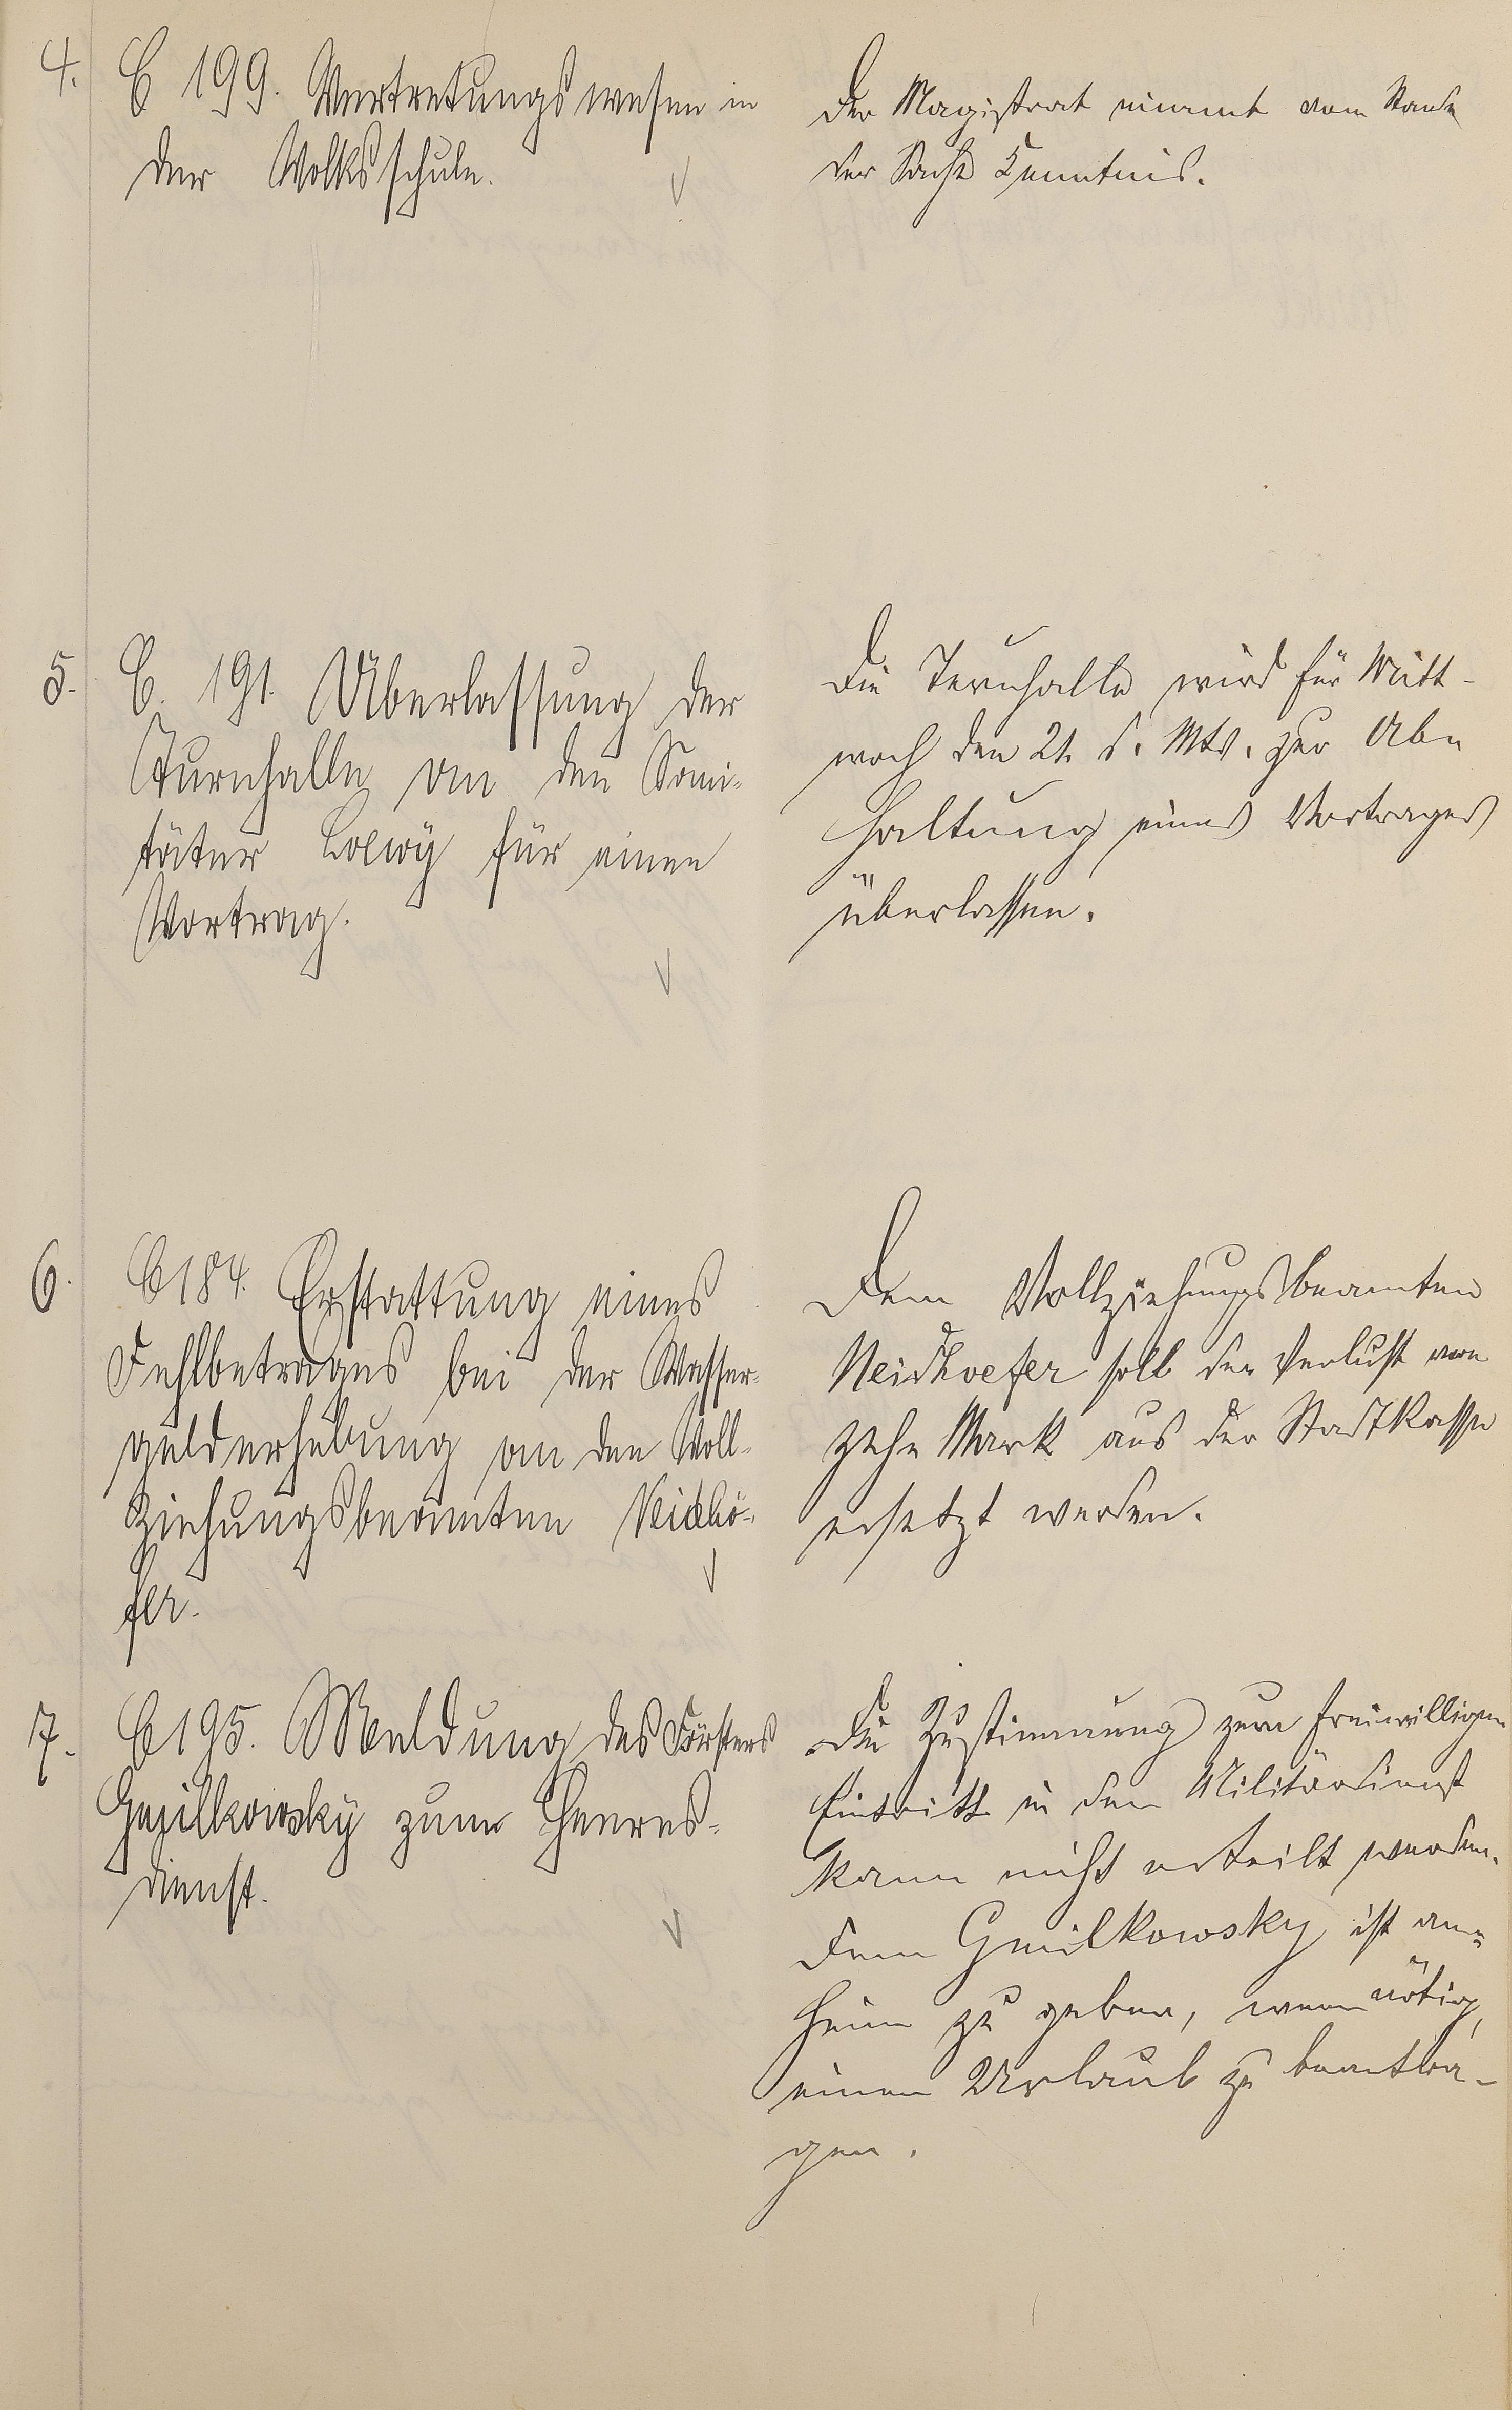 4. C 199. Vertretungswesen in
der Volksschule.
Der Magistrat nimmt vom Stande
der Sache Kenntnis.
5. C. 191. Überlassung der
Turnhalle an den Sani-
täter Loewÿ für einen
Vortrag.
Die Turnhalle wird für Mitt-
woch den 21. d. Mts. zur Ab-
haltung eines Vortrages
überlassen.
6. C 184. Erstattung eines
Fehlbetrages bei der Wasser-
gelderhebung an den Voll-
ziehungsbeamten Neidhö-
fer.
Dem Vollziehungsbeamten
Neidhoefer soll der Verlust von
zehn Mark aus der Stadtkasse
ersetzt werden.
7. C 195. Meldung des Försters
Gmilkowsky zum Heeres-
dienst.
Die Zustimmung zum freiwilligen
Eintritt in den Militärdienst
kann nicht erteilt werden.
Dem Gmilkowsky ist an-
heim zu geben, wenn nötig,
einen Urlaub zu beantra-
gen.